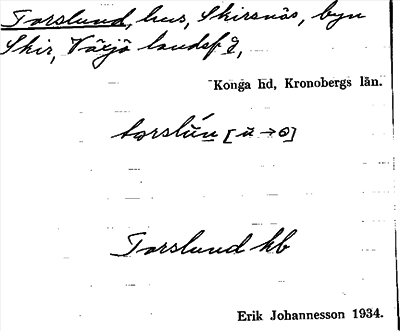 Torslund, hus, Skirsnäs, byn
Skir, Växjö landsf g,
Konga hd, Kronobergs län.
torslún [u → o]
Torslund kb
Erik Johannesson 1934.